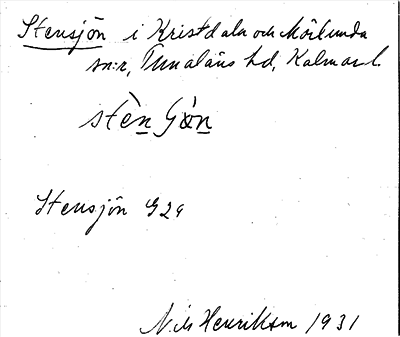 Stensjön i Kristdala och Mörlunda
sn:r, Tunaläns hd, Kalmar l.
stèn
Stensjön G29
Nils Henrikson 1931